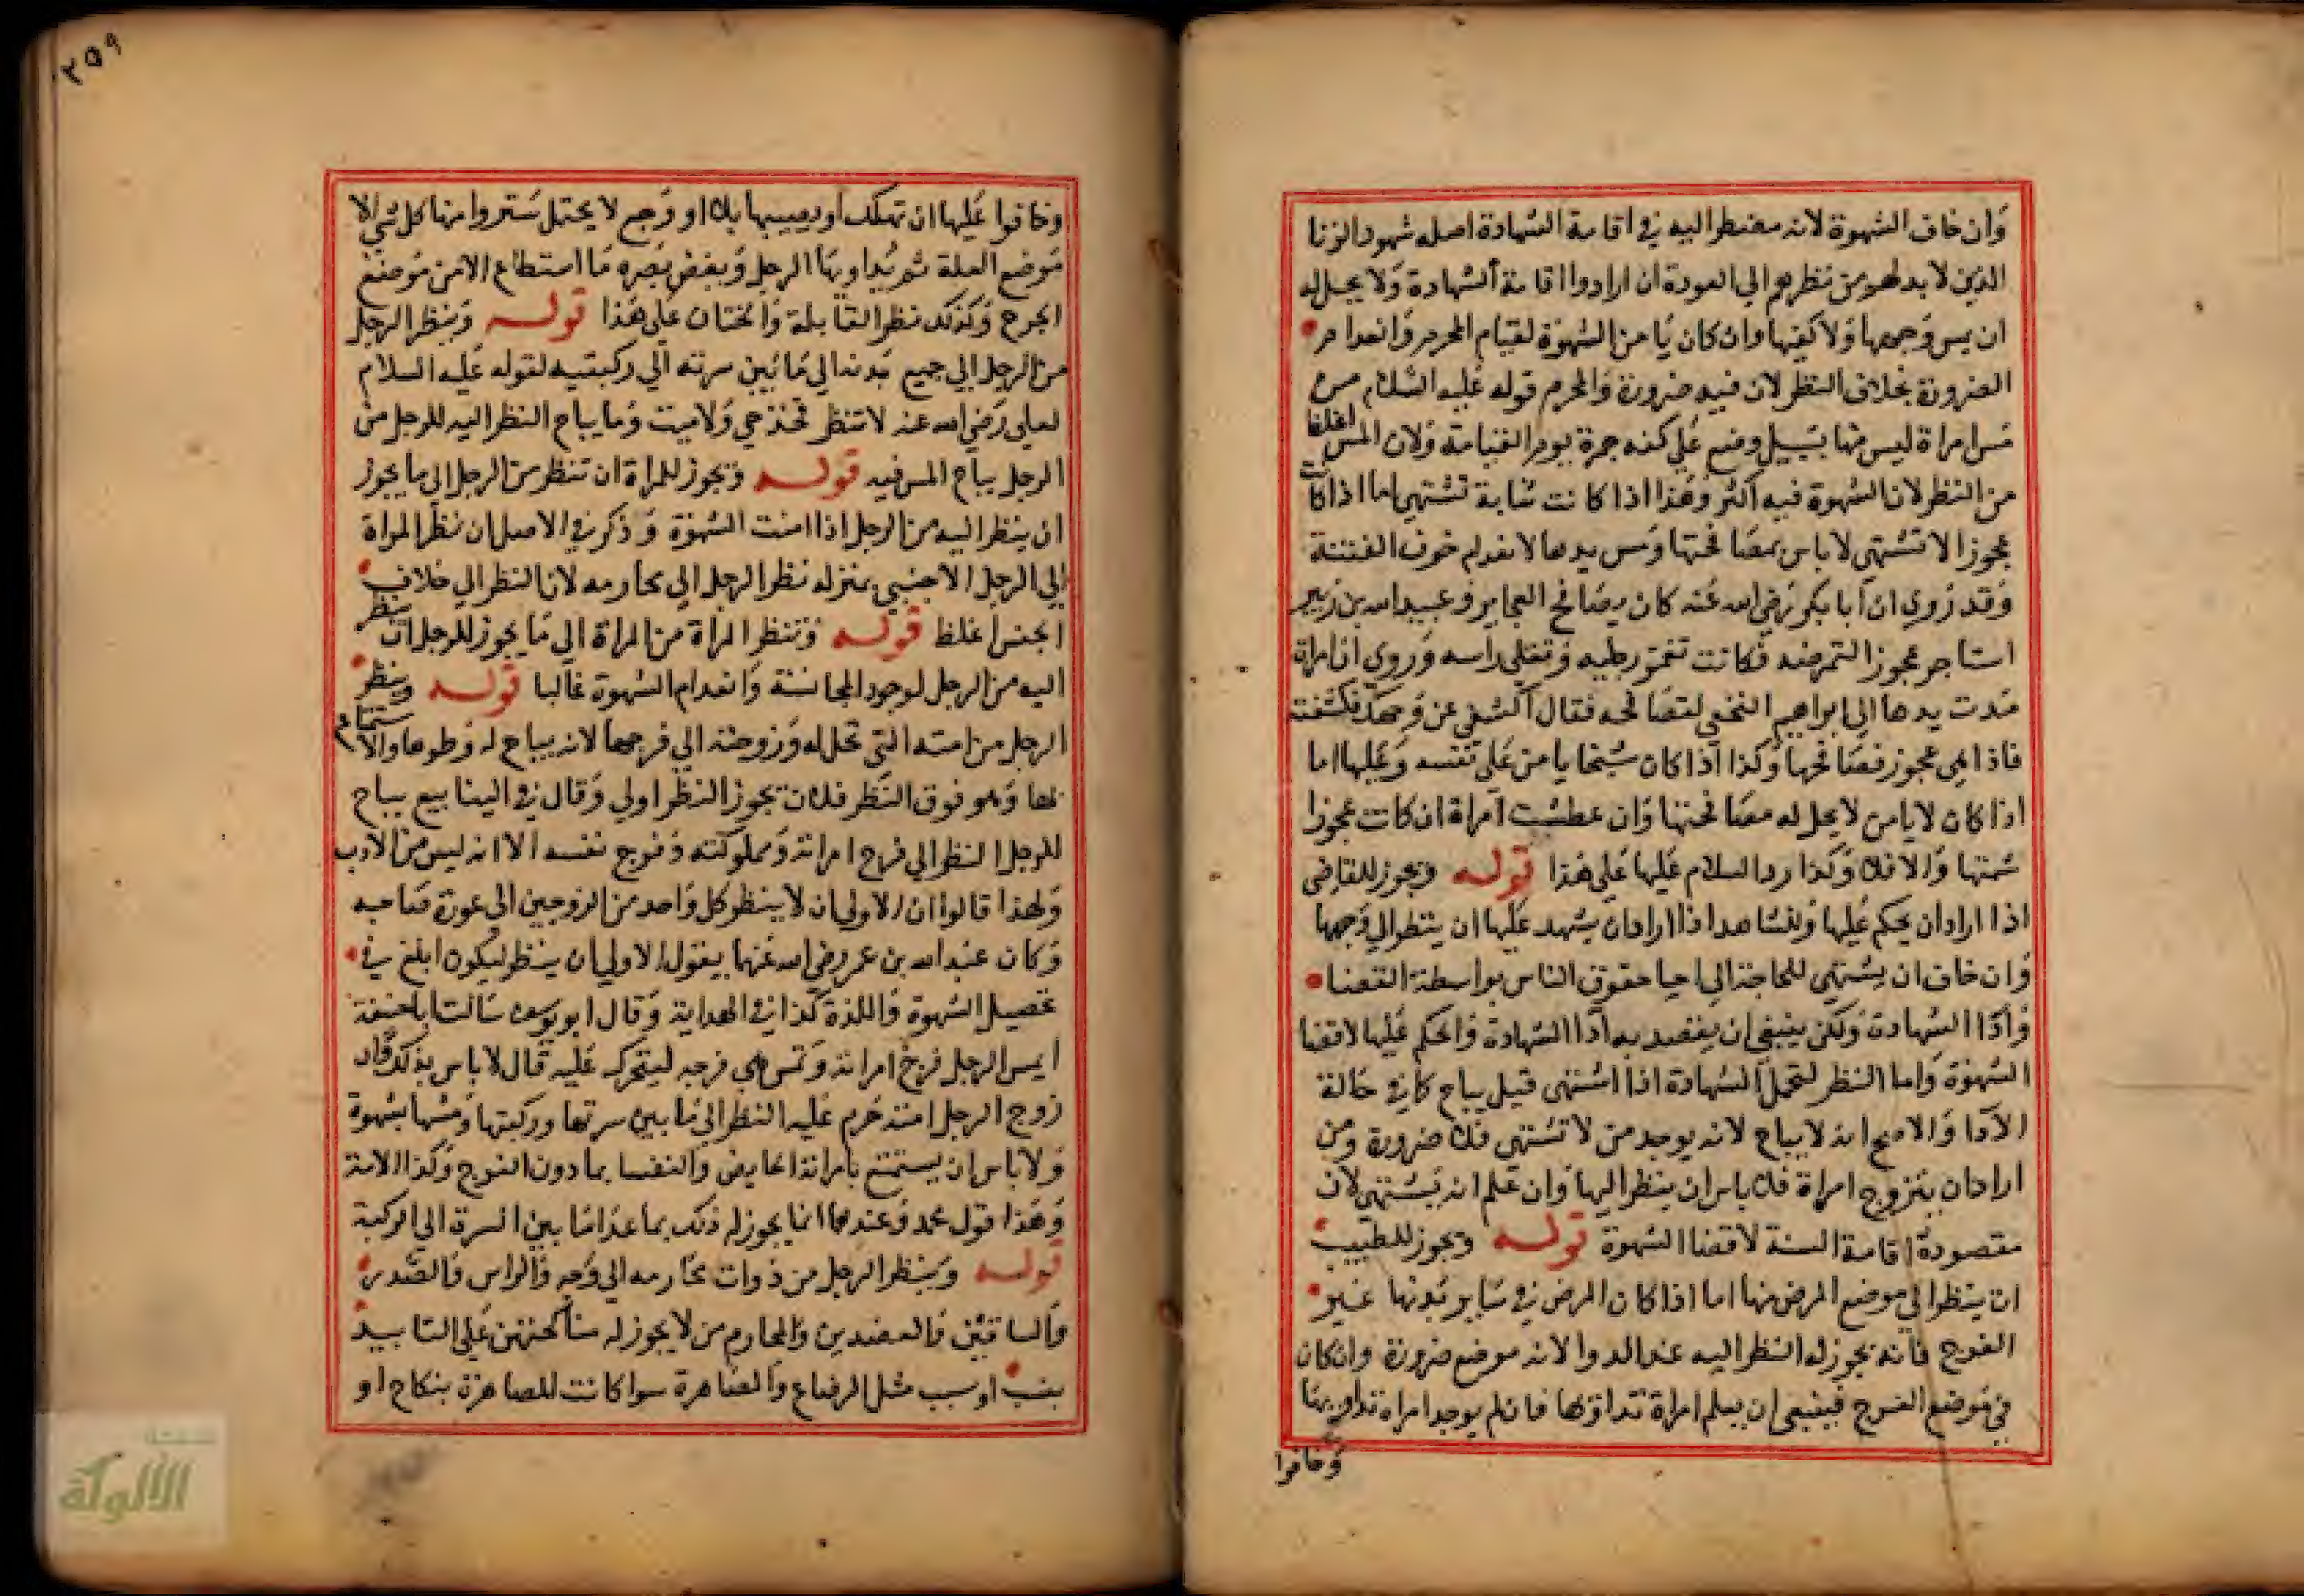 وان خاف الشهوة لانه مضطر اليه في اقامة الشهادة اصله شهود الزنا
الذين لا بد لهم من نظرهم الي العورة ان ارادوا اقامة الشهادة ولا يحل له
ان يمس وجهها ولا كفيها وان كان يامن الشهوة لقيام المحرم وانعدام
الضرورة بخلاف النظر لان فيه ضرورة والمحرم قوله عليه السلام من
مس امراة ليس منها بسبيل وضع علي كفه جمرة يوم القيامة ولان المس اغلظ
من النظر لان الشهوة فيه اكثر وهذا اذا كانت شابة تشتهي اما اذا كانت
عجوزا لا تشتهي لا باس بمصافحتها ومس يدها لانعدام خوف الفتنة
وقد روي ان ابا بكر رضي الله عنه كان يصافح العجايز وعبد الله بن زبير
استاجر عجوزا لتمرضه فكانت تغمز رجليه وتفلي راسه وروي ان امراة
مدت يدها الي ابراهيم النخعي لتصافحه فقال اكشفي عن وجهك فكشفته
فاذا هي عجوز فصافحها وكذا اذا كان شيخا يامن علي نفسه وعليها اما
اذا كان لا يامن لا يحل له مصافحتها وان عطست امراة ان كانت عجوزا
شمتها والا فلا وكذا رد السلام عليها علي هذا قوله ويجوز للقاضي
اذا اراد ان يحكم عليها وللشاهد اذا اراد ان يشهد عليها ان ينظر الي وجهها
وان خاف ان يشتهي للحاجة الي احيا حقوق الناس بواسطة القضا
وادا الشهادة ولكن ينبغي ان يقصد به ادا الشهادة والحكم عليها لا قضا
الشهوة واما النظر لتحمل الشهادة اذا اشتهي قيل يباح كما في حالة
الادا والاصح انه لا يباح لانه يوجد من لا تشتهي فلا ضرورة ومن
اراد ان يتزوج امراة فلا باس ان ينظر اليها وان علم انه يشتهي لان
مقصودة اقامة السنة لا قضا الشهوة قوله ويجوز للطبيب
ان ينظر الي موضع المرض منها اما اذا كان المرض في ساير بدنها غير
الفرج فانه يجوز له النظر اليه عند الدوا لانه موضع ضرورة وان كان
في موضع الفرج فينبغي ان يعلم امراة تداويها فان لم يوجد امراة تداويها
وخافوا
٢٥٩
وخافوا عليها ان تهلك او يصيبها بلا او وجع لا يحتمل ستروا منها كل شي الا
موضع العلة ثم يداويها الرجل ويغض بصره ما استطاع الا من موضع
الجرح وكذلك نظر القابلة والختان علي هذا قوله وينظر الرجل
من الرجل الي جميع بدنه الي ما بين سرته الي ركبتيه لقوله عليه السلام
لعلي رضي الله عنه لا تنظر فخذ حي ولا ميت وما يباح النظر اليه للرجل من
الرجل يباح المس فيه قوله ويجوز للمراة ان تنظر من الرجل الي ما يجوز
ان ينظر اليه من الرجل اذا امنت الشهوة وذكر في الاصل ان نظر المراة
الي الرجل الاجنبي بمنزله نظر الرجل الي محارمه لان النظر الي خلاف
الجنس اغلظ قوله وتنظر المراة من المراة الي ما يجوز للرجل ان ينظر
اليه من الرجل لوجود المجانسة وانعدام الشهوة غالبا قوله وينظر
الرجل من امته التي تحل له وزوجته الي فرجها لانه يباح له وطوها والاستمتاع
بها وهو فوق النظر فلان يجوز النظر اولي وقال في الينابيع يباح
للرجل النظر الي فرج امراته ومملوكته وفرج نفسه الا انه ليس من الادب
ولهذا قالوا ان الاولي ان لا ينظر كل واحد من الزوجين الي عورة صاحبه
وكان عبد الله بن عمر رضي الله عنهما يقول الاولي ان ينظر ليكون ابلغ في
تحصيل الشهوة واللذة كذا في الهداية وقال ابو يوسف سالت ابا حنيفة
ايمس الرجل فرج امراته وتمس هي فرجه ليتحرك عليه قال لا باس بذلك فان
زوج الرجل امته حرم عليه النظر الي ما بين سرتها وركبتها ومسها بشهوة
ولا باس ان يستمتع بامراته الحايض والنفسا بما دون الفرج وكذا الامة
وهذا قول محمد وعندهما انما يجوز له ذلك بما عدا ما بين السرة الي الركبة
قوله وينظر الرجل من ذوات محارمه الي وجه والراس والصدر
والساقين والعضدين والمحارم من لا يجوز له مناكحتهن علي التابيد
بنسب او سبب مثل الرضاع والمصاهرة سوا كانت المصاهرة بنكاح او
شبكة
الألوكة